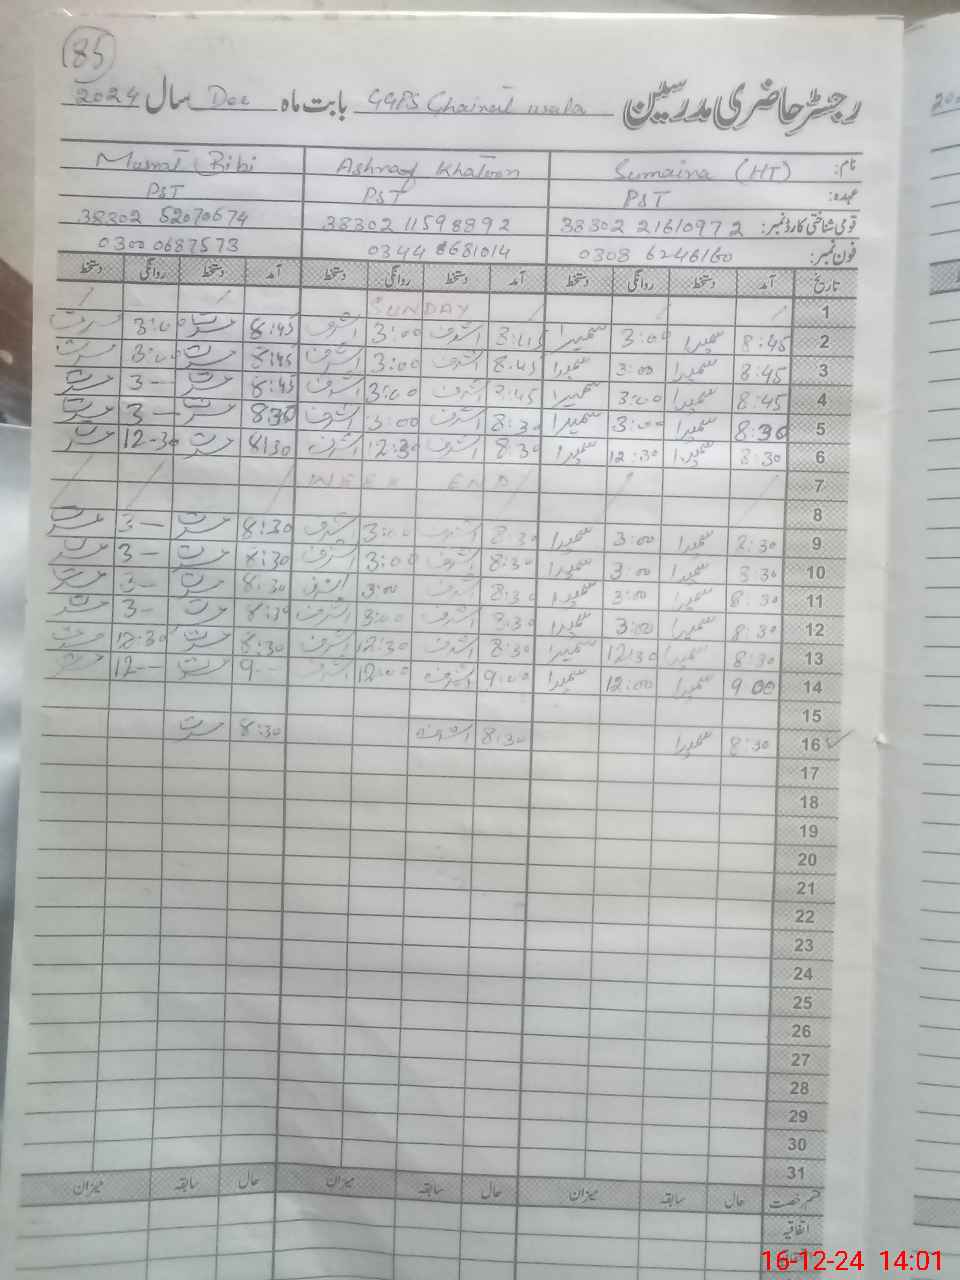 85
رجسٹر حاضری مدرسین GGPS بابت ماہ Dec سال 2024
نام: Sumaira (HT) Ashraf Khatoon Musrat Bibi
عہدہ: PST PST PST
قومی شناختی کارڈ نمبر: 38302 2161097 2 38302 1159889 2 38302 5207067 4
فون نمبر: 0308 6246160 0344 8681014 0300 0687573
تاریخ آمد دستخط روانگی دستخط آمد دستخط روانگی دستخط آمد دستخط روانگی دستخط
1 SUNDAY
2 8:45 سمیرا 3:00 سمیرا اشرف 3:00 اشرف 8:45 مسرت 3:00 مسرت
3 8:45 سمیرا 3:00 سمیرا 8:45 اشرف 3:00 اشرف 8:45 مسرت 3:00 مسرت
4 8:45 سمیرا 3:00 سمیرا اشرف 3:00 اشرف 8:45 مسرت 3- مسرت
5 8:30 سمیرا 3:00 سمیرا 8:30 اشرف 3:00 اشرف 830 مسرت 3- مسرت
6 8:30 سمیرا 12:30 سمیرا 8:30 اشرف 12:30 اشرف 8:30 مسرت 12-30 مسرت
7 WEEK END
8
9 8:30 سمیرا 3:00 سمیرا 8:30 اشرف 3:00 اشرف 8:30 مسرت 3- مسرت
10 8:30 سمیرا 3:00 سمیرا 8:30 اشرف 3:00 اشرف 8:30 مسرت 3- مسرت
11 8:30 سمیرا 3:00 سمیرا 8:30 اشرف 3:00 اشرف 8:30 مسرت 3- مسرت
12 8:30 سمیرا 3:00 سمیرا 8:30 اشرف 3:00 اشرف 8:30 مسرت 3- مسرت
13 8:30 سمیرا 12:30 سمیرا 8:30 اشرف 12:30 اشرف 8:30 مسرت 12:30 مسرت
14 9 00 سمیرا 12:00 سمیرا 9:00 اشرف 12:00 اشرف 9-- مسرت 12-- مسرت
15
16 8:30 سمیرا 8:30 اشرف 8:30 مسرت
17
18
19
20
21
22
23
24
25
26
27
28
29
30
31
قسم رخصت حال سابقہ میزان حال سابقہ میزان حال سابقہ میزان
اتفاقیہ
16-12-24 14:01